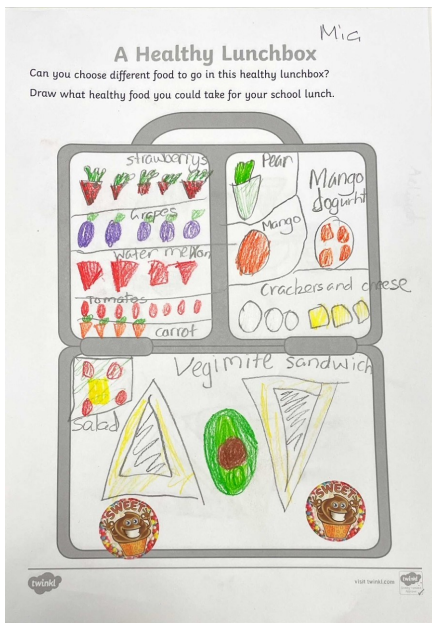 Mia
A Healthy Lunchbox
Can you choose different food to go in this healthy lunchbox?
Draw what healthy food you could take for your school lunch.
strawberrys
Grapes
water mellan
Tomatos
carrot
Pear
Mango
Mango
Jogurht
Crackers and cheese
Vegimite sandwich
salad
SWEET
SWEET
twinkl
visit twinkl.com
twinkl